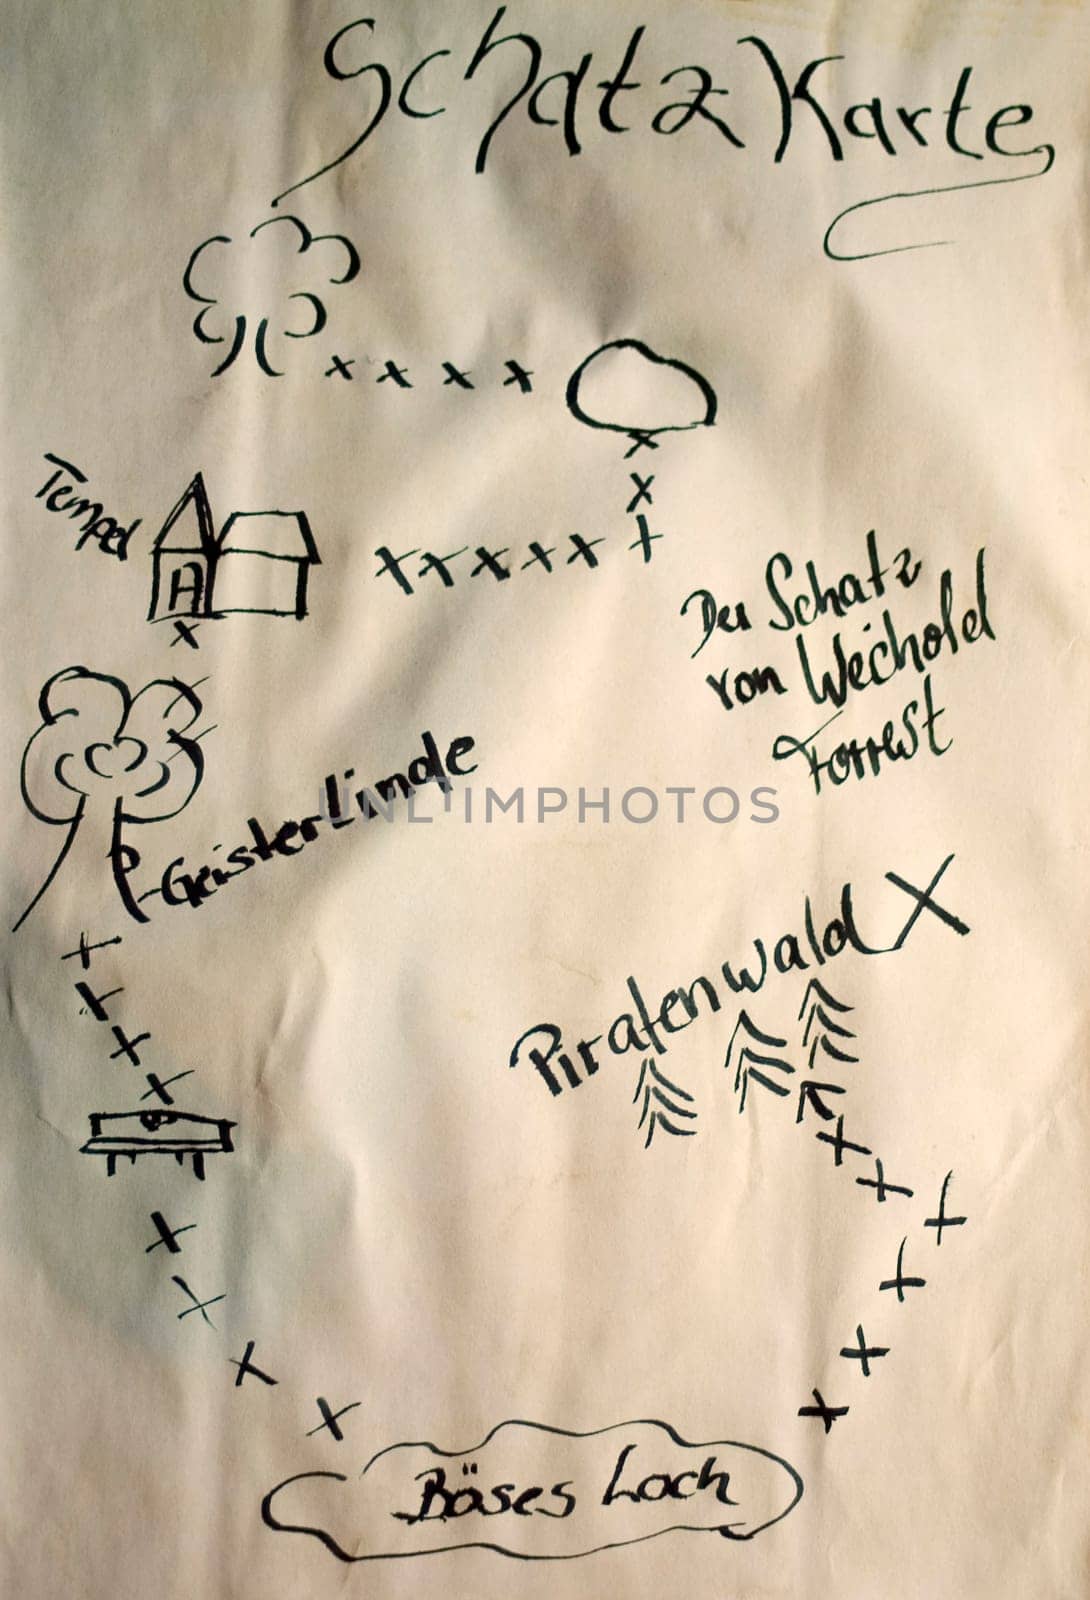 SchatzKarte
Tempel
Der Schatz
von Wechold
Forrest
Geisterlinde
UNLIMPHOTOS
Piratenwald
Böses Loch